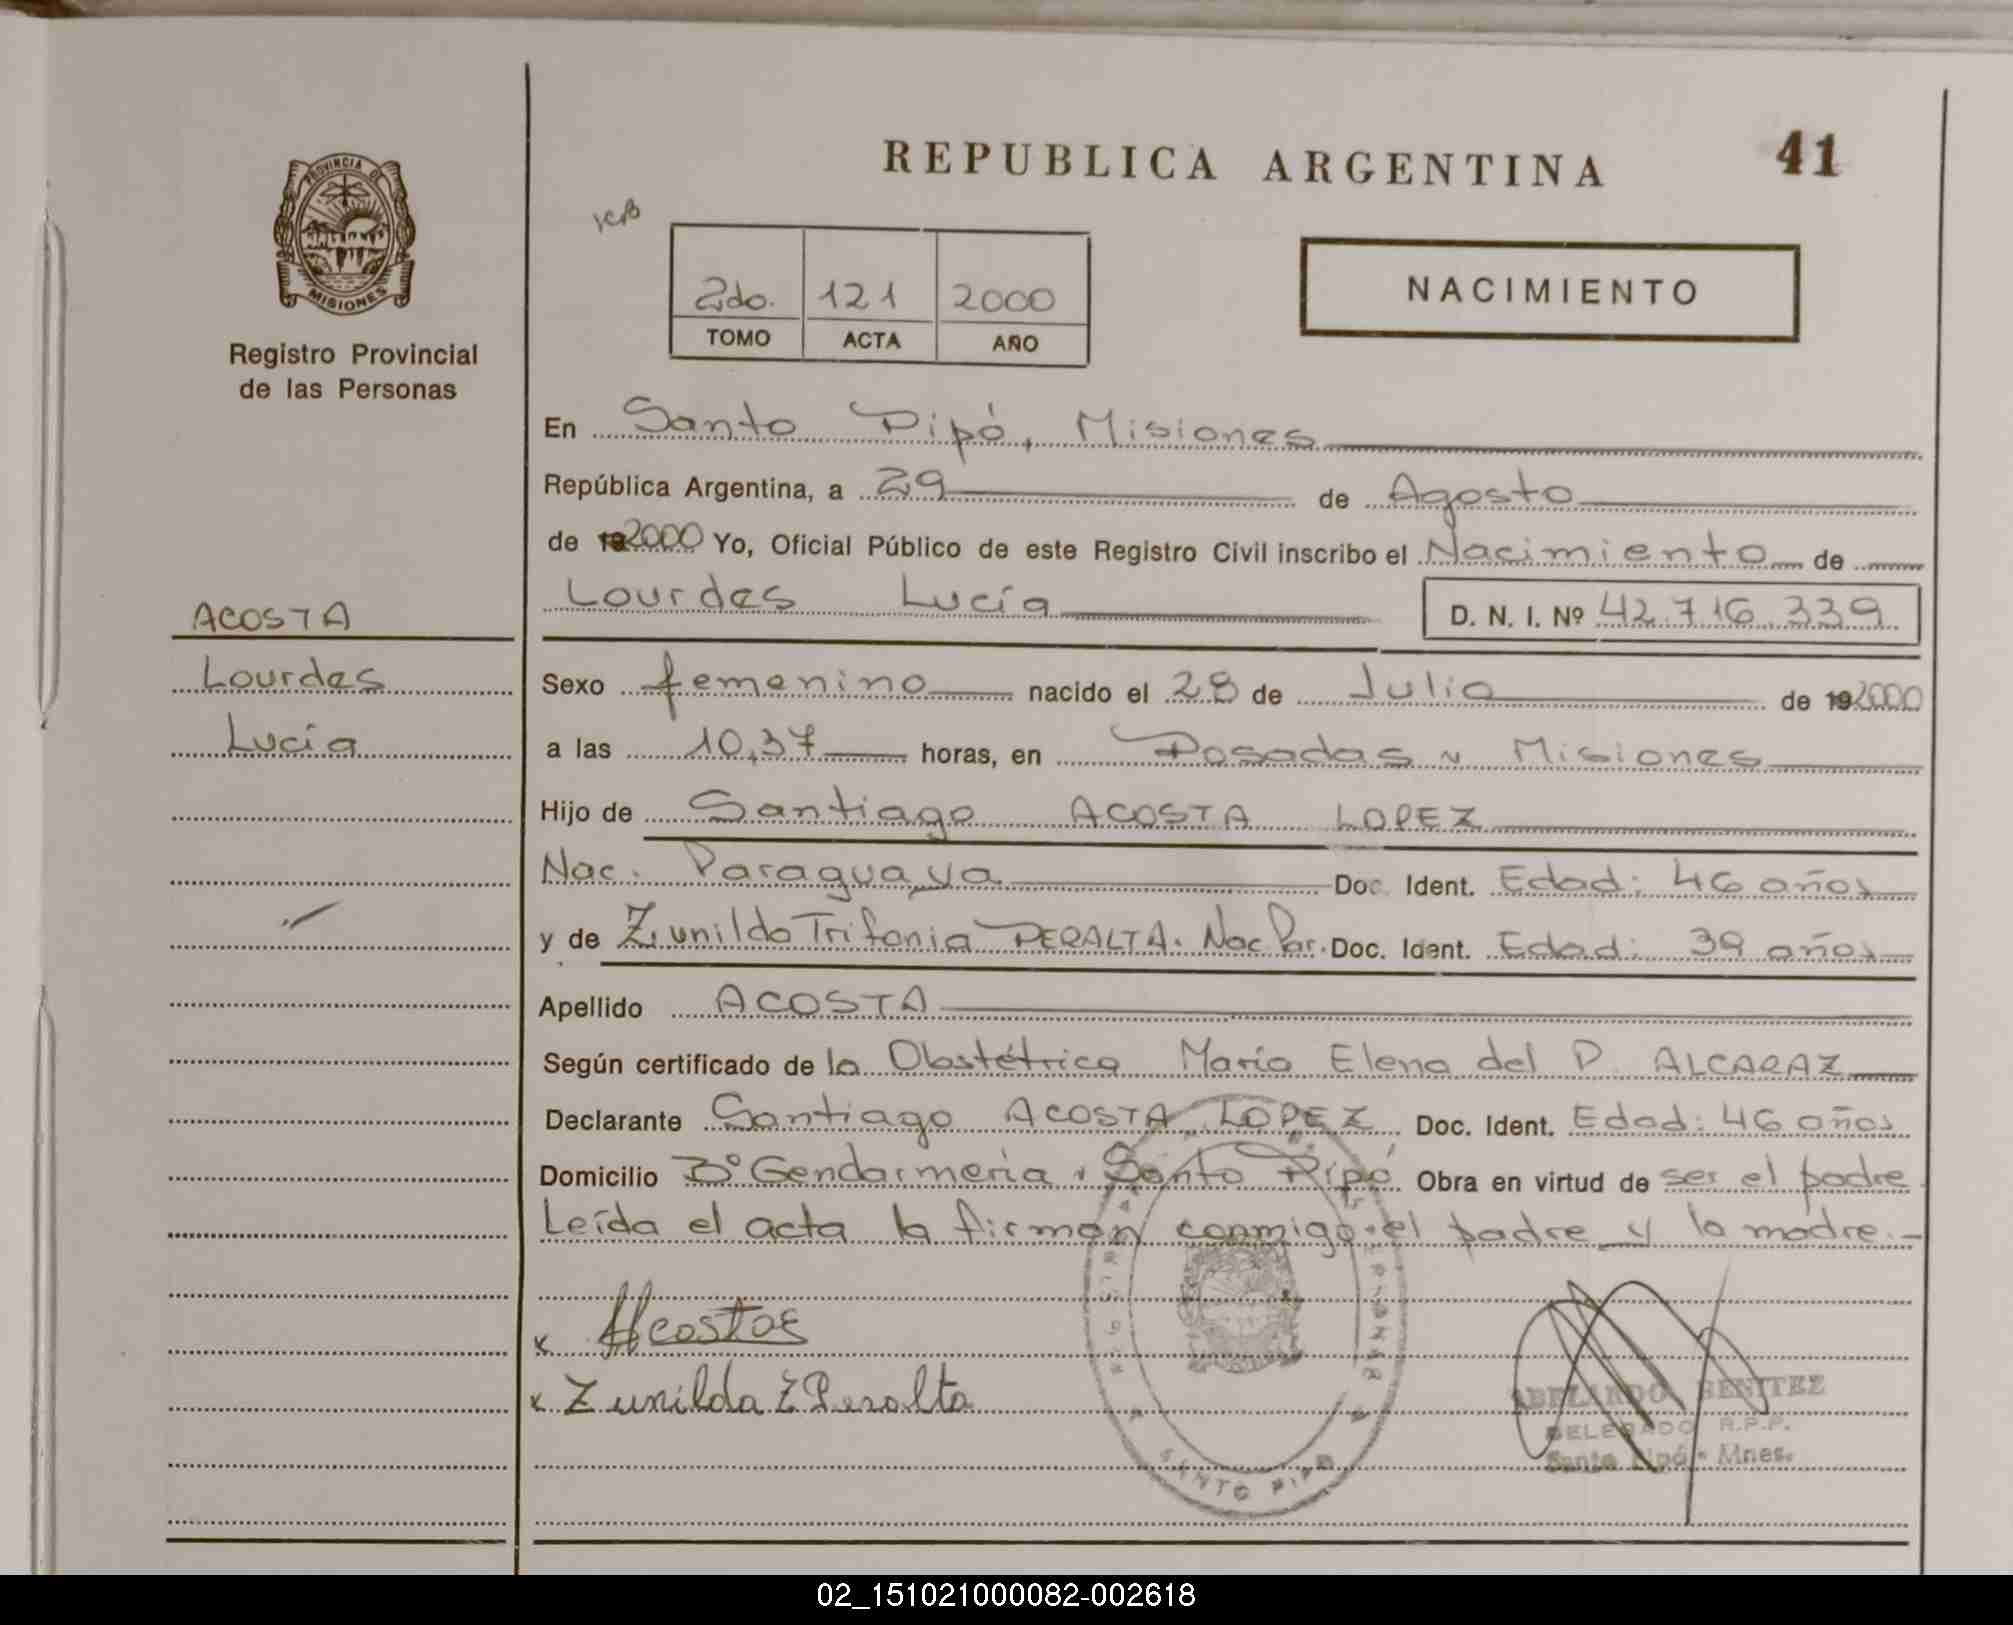 REPUBLICA ARGENTINA
41
PROVINCIA DE
MISIONES
Registro Provincial
de las Personas
2do. 121 2000
TOMO ACTA AÑO
NACIMIENTO
En Santo Pipó, Misiones
República Argentina, a 29 de Agosto
de 192000 Yo, Oficial Público de este Registro Civil inscribo el Nacimiento de
Lourdes Lucía D. N. I. Nº 42.716.339
ACOSTA
Lourdes
Lucía
Sexo femenino nacido el 28 de Julio de 192000
a las 10,37 horas, en Posadas, Misiones
Hijo de Santiago ACOSTA LOPEZ
Nac. Paraguaya Doc. Ident. Edad: 46 años
y de Zunilda Trifonia PERALTA. Nac Par. Doc. Ident. Edad: 39 años
Apellido ACOSTA
Según certificado de la Obstétrica María Elena del P. ALCARAZ
Declarante Santiago ACOSTA LOPEZ Doc. Ident. Edad: 46 años
Domicilio Bº Gendarmeria, Santo Pipó Obra en virtud de ser el padre
Leída el acta la firman conmigo el padre y la madre.-
x Acostas
x Zunilda Peralta
SANTO PIPO
ABELARDO BENITEZ
DELEGADO R.P.P.
Santo Pipó - Mnes.
02_151021000082-002618